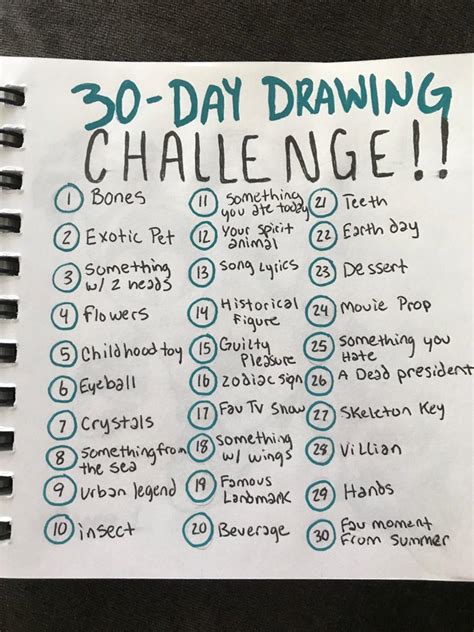 30-DAY DRAWING
CHALLENGE!!
1 Bones
2 Exotic Pet
3 Something
w/ 2 heads
4 flowers
5 Childhood toy
6 Eyeball
7 Crystals
8 Something from
the sea
9 urban legend
10 insect
11 Something
you ate today
12 Your spirit
animal
13 Song Lyrics
14 Historical
Figure
15 Guilty
Pleasure
16 Zodiac sign
17 Fav TV Show
18 Something
w/ wings
19 Famous
Landmark
20 Beverage
21 Teeth
22 Earth day
23 Dessert
24 Movie Prop
25 Something you
Hate
26 A Dead president
27 Skeleton Key
28 Villian
29 Hands
30 Fav moment
From Summer